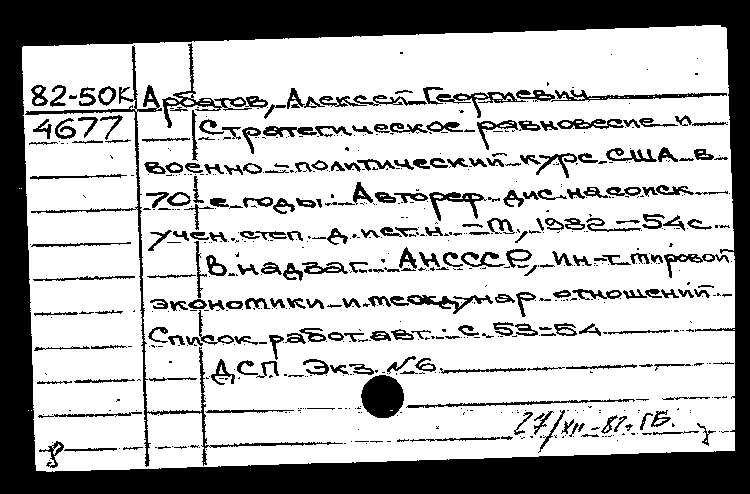 82-50К Арбатов, Алексей Георгиевич
4677 Стратегическое равновесие и
военно-политический курс США в
70-е годы: Автореф. дис. на соиск.
учен. степ. д. ист. н. - М, 1982 - 54 с.
В надзаг.: АН СССР, Ин-т мировой
экономики и междунар. отношений
Список работ авт.: с. 53-54
ДСП Экз. №6.
27/XII-82. ГБ.